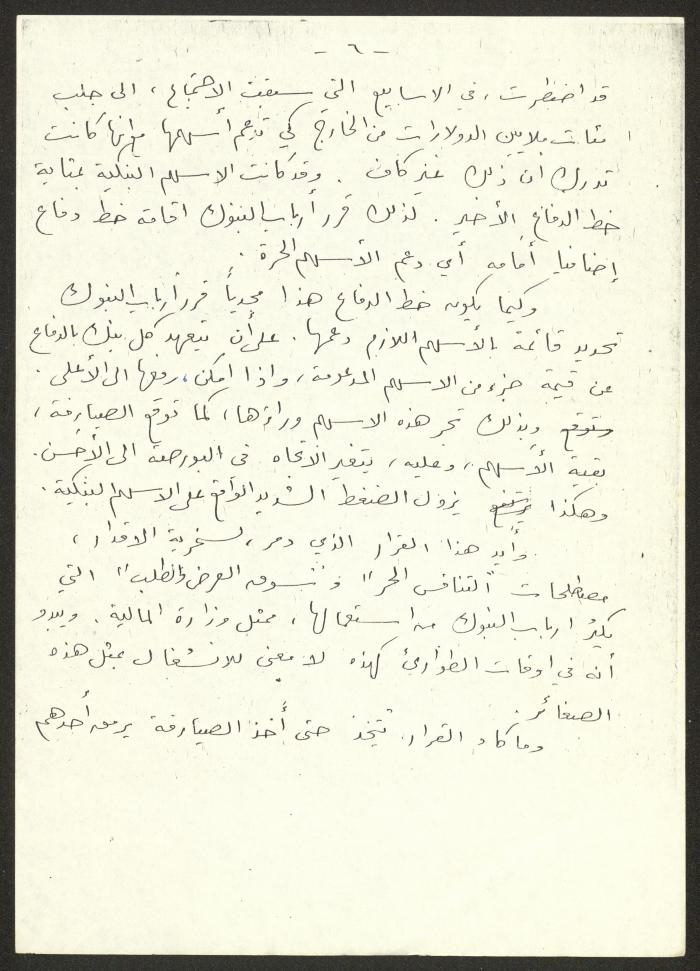 - ٦ -
قد اضطرت، في الاسابيع التي سبقت الاجتماع، الى جلب
مئات ملايين الدولارات من الخارج كي تدعم أسهمها مع انها كانت
تدرك ان ذلك غير كاف. وقد كانت الاسهم البنكية بمثابة
خط الدفاع الأخير. لذلك قرر أرباب البنوك اقامة خط دفاع
إضافيا أمامه أي دعم الأسهم الحرة.
وكيما يكون خط الدفاع هذا مجدياً قرر أرباب البنوك
تحديد قائمة بالأسهم اللازم دعمها. على أن يتعهد كل بنك بالدفاع
عن قيمة جزء من الاسهم المدعومة، واذا امكن، رفعها الى الأعلى.
وتوقع وبذلك تجر هذه الاسهم وراءها، كما توقع الصيارفة،
بقية الأسهم، وعليه، يتغير الاتجاه في البورصة الى الأحسن.
وهكذا يزول الضغط الشديد الواقع على الاسهم البنكية.
وأيد هذا القرار الذي دمر، لسخرية الاقدار،
مصطلحات "التنافس الحر" و "سوق العرض والطلب" التي
يكثر ارباب البنوك من استعمالها، ممثل وزارة المالية. ويبدو
أنه في اوقات الطوارئ كهذه لا معنى للانشغال بمثل هذه
الصغائر.
وما كاد القرار يتخذ حتى أخذ الصيارفة يرمق أحدهم